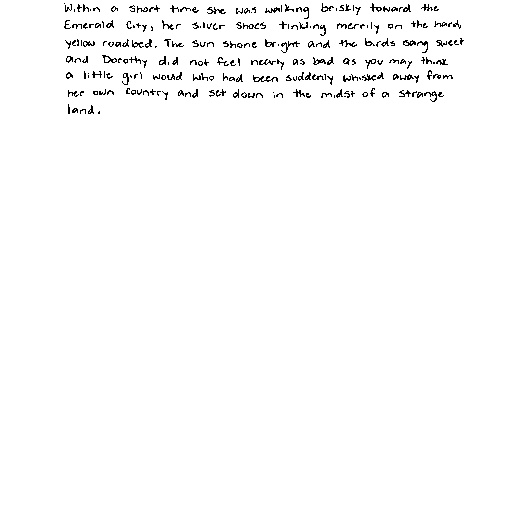 Within a short time she was walking briskly toward the
Emerald City, her silver shoes tinkling merrily on the hard,
yellow roadbed. The sun shone bright and the birds sang sweet
and Dorothy did not feel nearly as bad as you may think
a little girl would who had been suddenly whisked away from
her own country and set down in the midst of a strange
land.